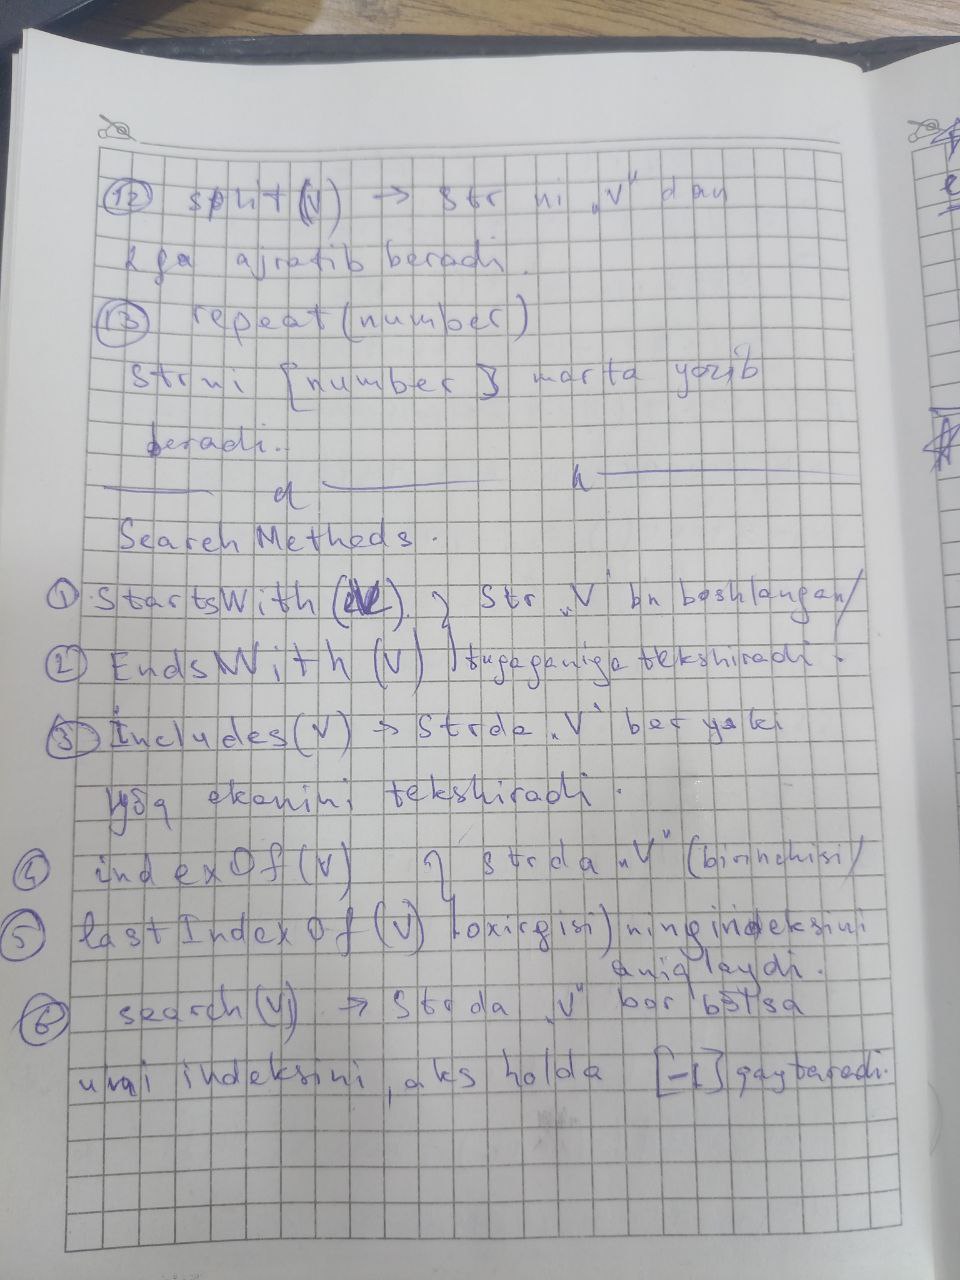 12 split(V) → Str ni „V" dan
2 ga ajratib beradi.
13 repeat(number)
Strni [number] marta yozib
beradi.
Search Methods.
1. StartsWith(V). } Str „V" bn boshlangan/
2 EndsWith (V) } tugaganiga tekshiradi.
3 Includes(V) → Strda „V" bor yoki
yõq ekanini tekshiradi.
4 indexOf(V) } strda „V" (birinchisi/
5 lastIndexOf(V) } oxirgisi) ning indeksini
aniqlaydi.
6 search(V) → Strda „V" bor bõlsa
uni indeksini, aks holda [-1] qaytaradi.